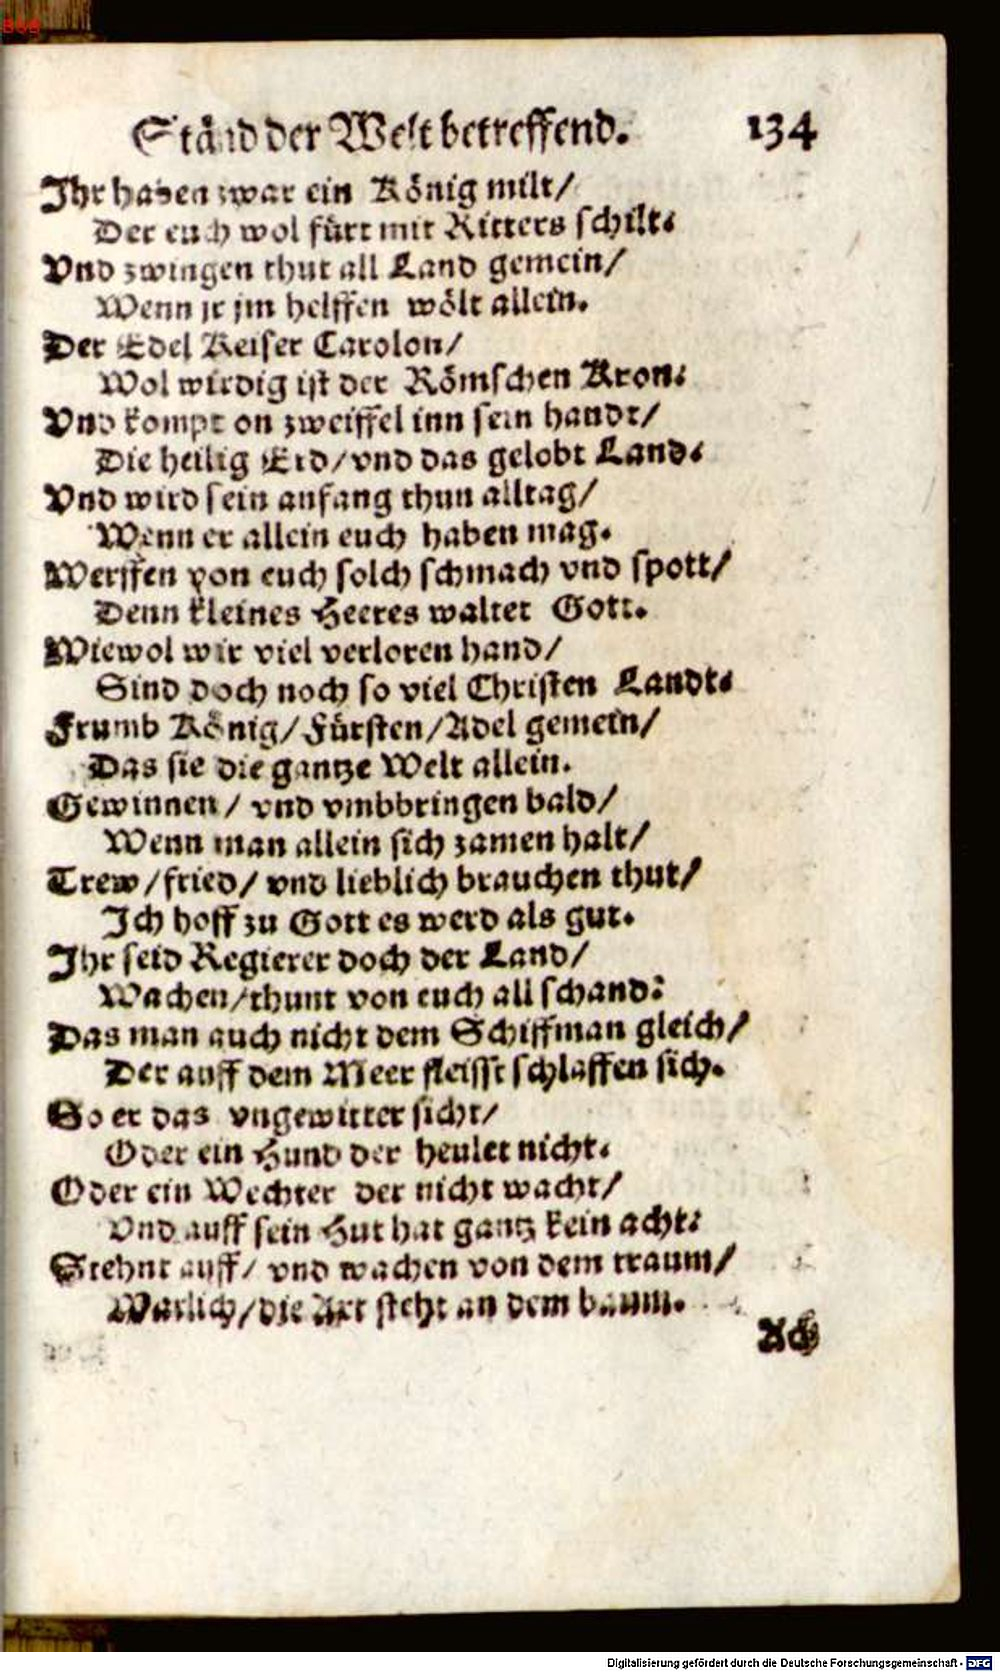 Ständ der Welt betreffend. 134
Ihr haben zwar ein König milt/
Der euch wol fürt mit Ritters schilt.
Vnd zwingen thut all Land gemein/
Wenn jr jm helffen wölt allein.
Der Edel Keiser Carolon/
Wol wirdig ist der Römschen Kron.
Vnd kompt on zweiffel inn sein handt/
Die heilig Erd/vnd das gelobt Land.
Vnd wird sein anfang thun alltag/
Wenn er allein euch haben mag.
Werffen von euch solch schmach vnd spott/
Denn kleines Heeres waltet Gott.
Wiewol wir viel verloren hand/
Sind doch noch so viel Christen Landt.
Frumb König/Fürsten/Adel gemein/
Das sie die gantze Welt allein.
Gewinnen/ vnd vmbbringen bald/
Wenn man allein sich zamen halt/
Trew/fried/ vnd lieblich brauchen thut/
Ich hoff zu Gott es werd als gut.
Ihr seid Regierer doch der Land/
Wachen/thunt von euch all schand:
Das man auch nicht dem Schiffman gleich/
Der auff dem Meer fleisst schlaffen sich.
So er das vngewitter sicht/
Oder ein Hund der heulet nicht.
Oder ein Wechter der nicht wacht/
Vnd auff sein Hut hat gantz kein acht:
Stehnt auff/ vnd wachen von dem traum/
Warlich/die Axt steht an dem baum.
Ach
Digitalisierung gefördert durch die Deutsche Forschungsgemeinschaft - DFG